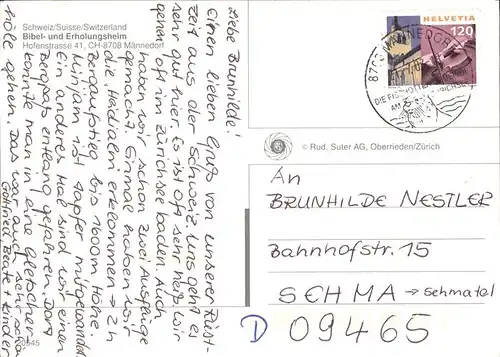 Schweiz/Suisse/Switzerland
Bibel- und Erholungsheim
Hofenstrasse 41, CH-8708 Männedorf
Liebe Brunhilde!
Einen lieben Gruß von unserer Rüst-
zeit aus der Schweiz. Uns geht es
sehr gut hier. Es ist oft sehr heiß, wir
gehen oft im Zürichsee baden. Auch
haben wir schon zwei Ausflüge
gemacht. Einmal haben wir
die erklommen → 2h
Bergaufstieg bis 1600m Höhe.
Mirjam ist tapfer mitgewandert.
Ein anderes Mal sind wir einen
Bergpaß entlang gefahren. Dort
konnte man in eine Gletscher-
höle gehen. Das war auch sehr schön
Gottfried, Beate + Kinder
HELVETIA
120
8708 MÄNNEDORF
© Rud. Suter AG, Oberrieden/Zürich
An
BRUNHILDE NESTLER
Bahnhofstr. 15
SEHMA → Sehmatal
D 09465